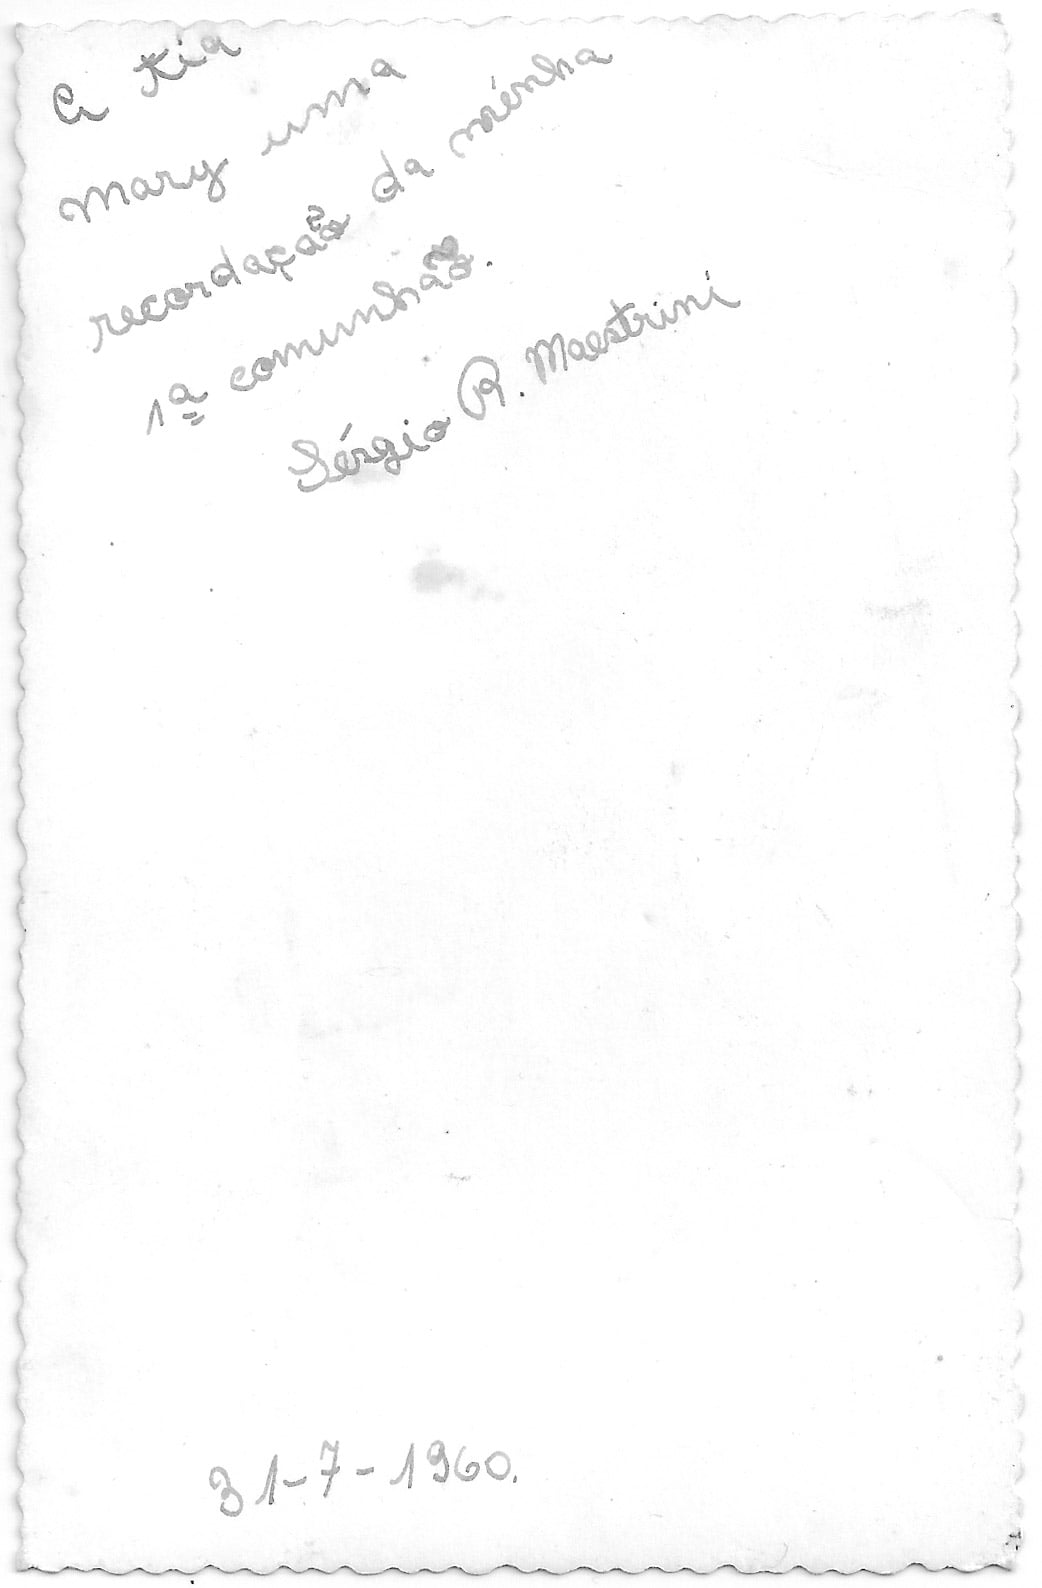 A tia
Mary uma
recordação da minha
1ª comunhão.
Sérgio R. Maestrini
31-7-1960.